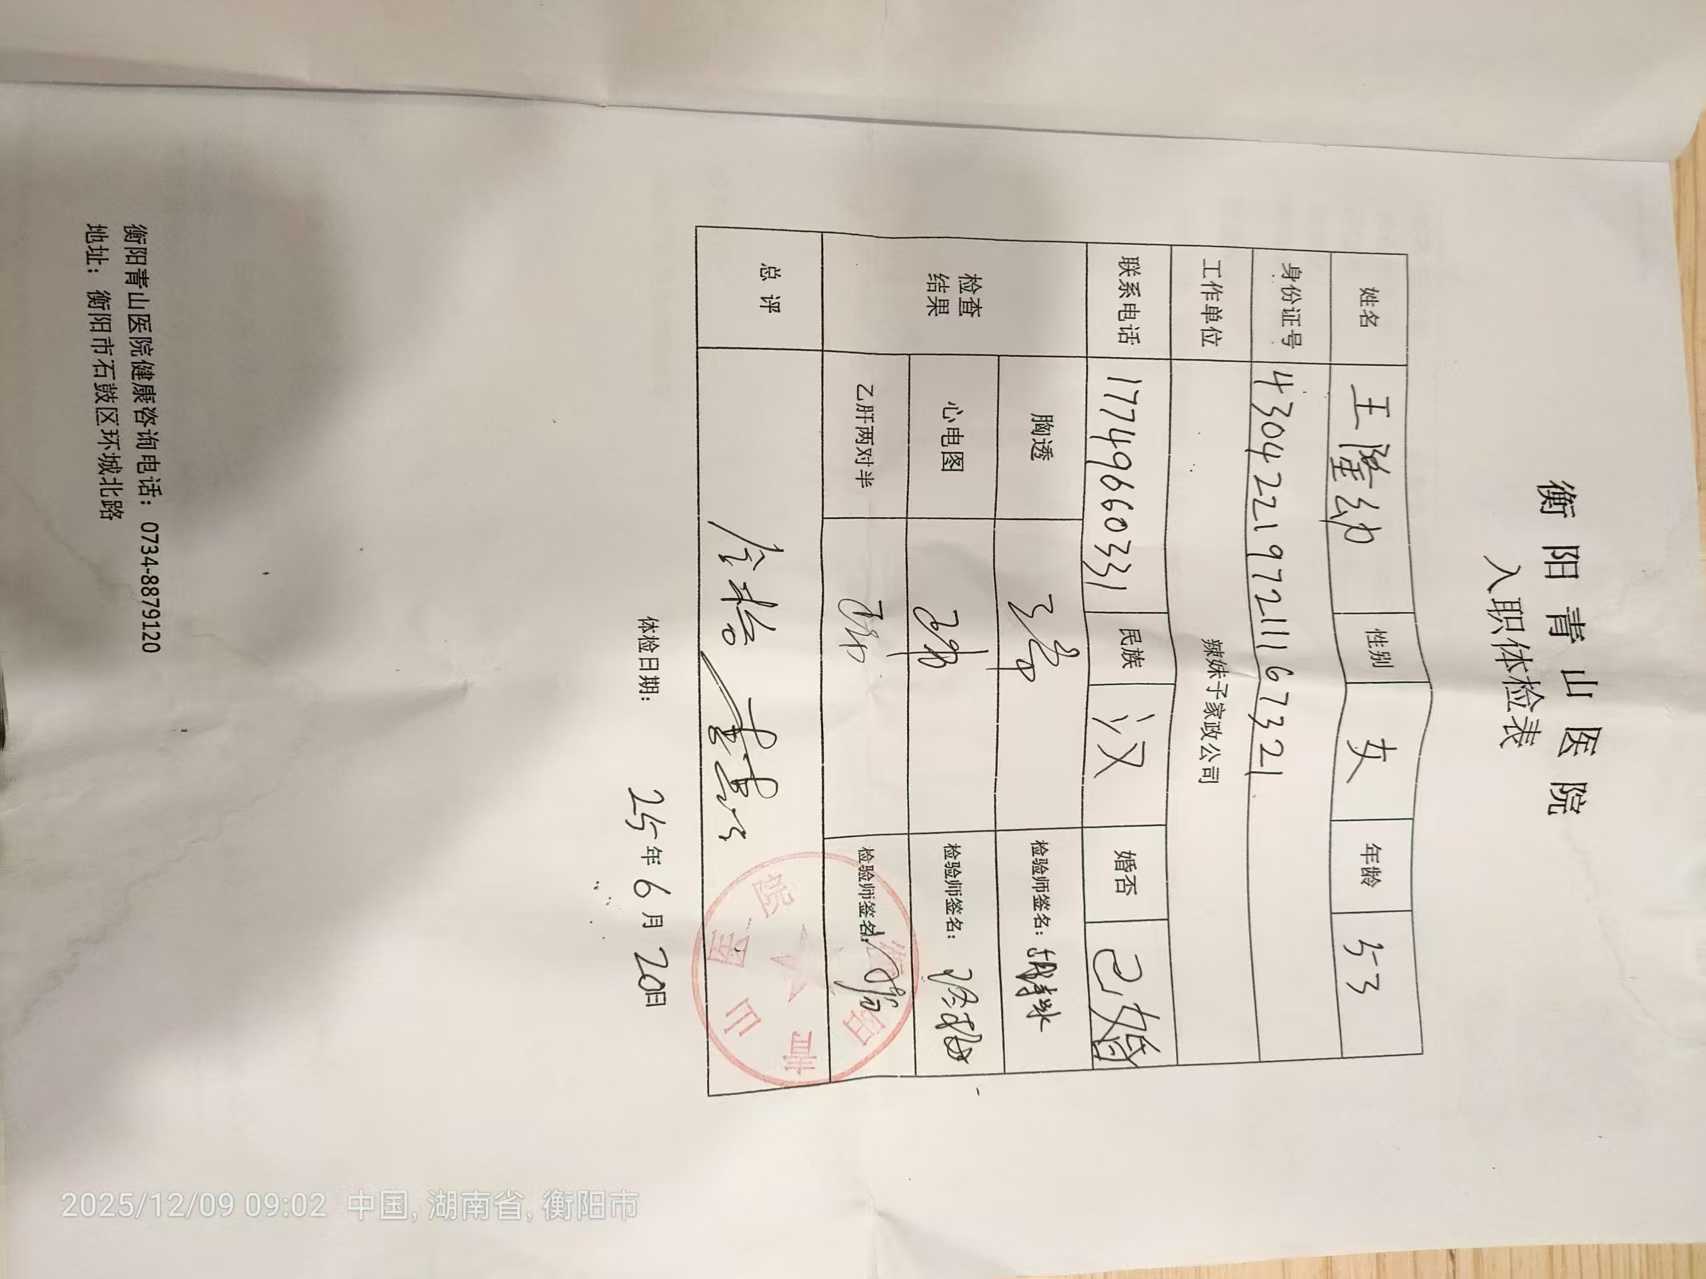 衡阳青山医院
入职体检表
姓名 王隆幼 性别 女 年龄 53
身份证号 430422197211167321
工作单位 辣妹子家政公司
联系电话 17749660331 民族 汉 婚否 已婚
检查结果
胸透 检验师签名:
心电图 检验师签名:
乙肝两对半 检验师签名:
总评 合格
衡阳青山医院
体检日期: 25年6月20日
衡阳青山医院健康咨询电话: 0734-8879120
地址: 衡阳市石鼓区环城北路
2025/12/09 09:02 中国, 湖南省, 衡阳市